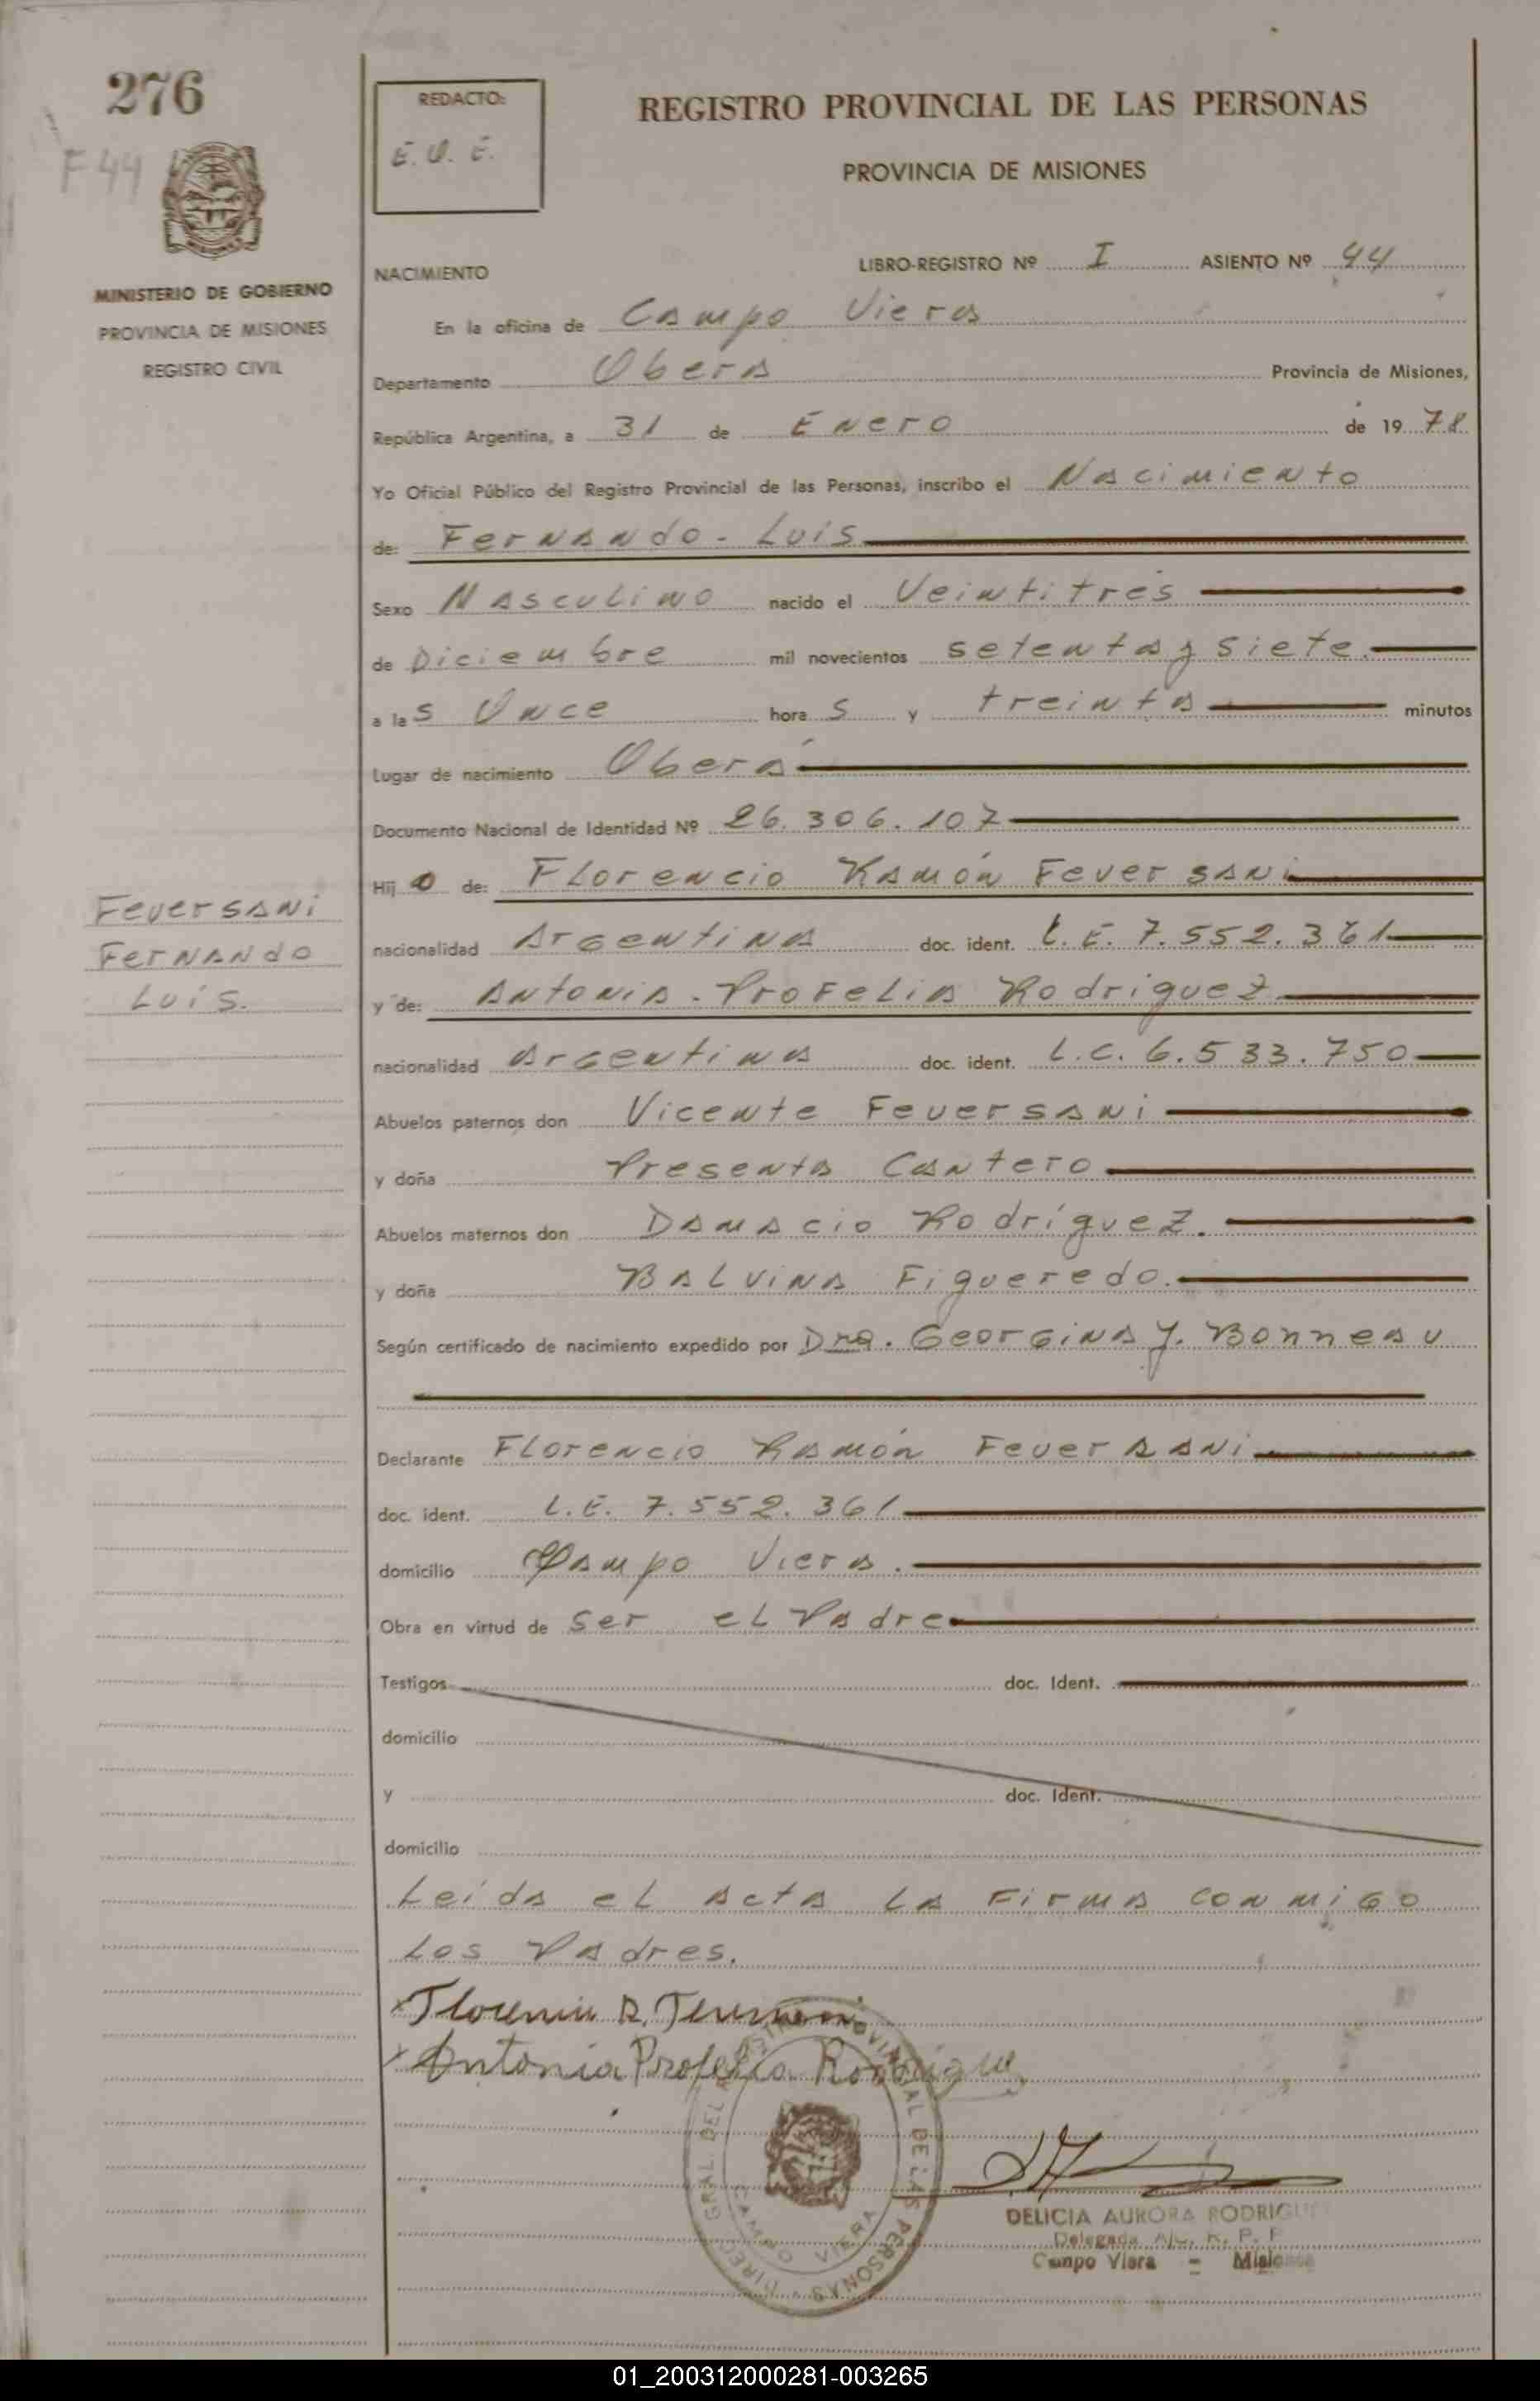 276
F 44
MINISTERIO DE GOBIERNO
PROVINCIA DE MISIONES
REGISTRO CIVIL
REDACTO:
E. U. E.
REGISTRO PROVINCIAL DE LAS PERSONAS
PROVINCIA DE MISIONES
NACIMIENTO LIBRO-REGISTRO Nº I ASIENTO Nº 44
En la oficina de Campo Viera
Departamento Obera Provincia de Misiones,
República Argentina, a 31 de Enero de 1978
Yo Oficial Público del Registro Provincial de las Personas, inscribo el Nacimiento
de: Fernando - Luis
Sexo Masculino nacido el Veintitrés
de Diciembre mil novecientos setenta y siete.
a las Once horas y treinta minutos
Lugar de nacimiento Oberá
Documento Nacional de Identidad Nº 26.306.107
Hijo de: Florencio Ramón Feversani
nacionalidad Argentina doc. ident. L.E. 7.552.361
y de: Antonia - Profelia Rodriguez
nacionalidad Argentina doc. ident. L.C. 6.533.750
Abuelos paternos don Vicente Feversani
y doña Presenta Cantero
Abuelos maternos don Damacio Rodríguez.
y doña Balvina Figueredo.
Según certificado de nacimiento expedido por Dra. Georgina J. Bonneau
Declarante Florencio Ramón Feversani
doc. ident. L.E. 7.552.361
domicilio Campo Viera.
Obra en virtud de ser el Padre
Testigos doc. Ident.
domicilio
y doc. Ident.
domicilio
Leída el acta la firma conmigo
Los Padres.
Feversani
Fernando
Luis.
Florencio R. Feversani
Antonia Profelia Rodriguez
DIREC. GRAL. DEL REGISTRO PROVINCIAL DE LAS PERSONAS
CAMPO VIERA
DELICIA AURORA RODRIGUEZ
Delegada R. P. P
Campo Viera - Misiones
01_200312000281-003265